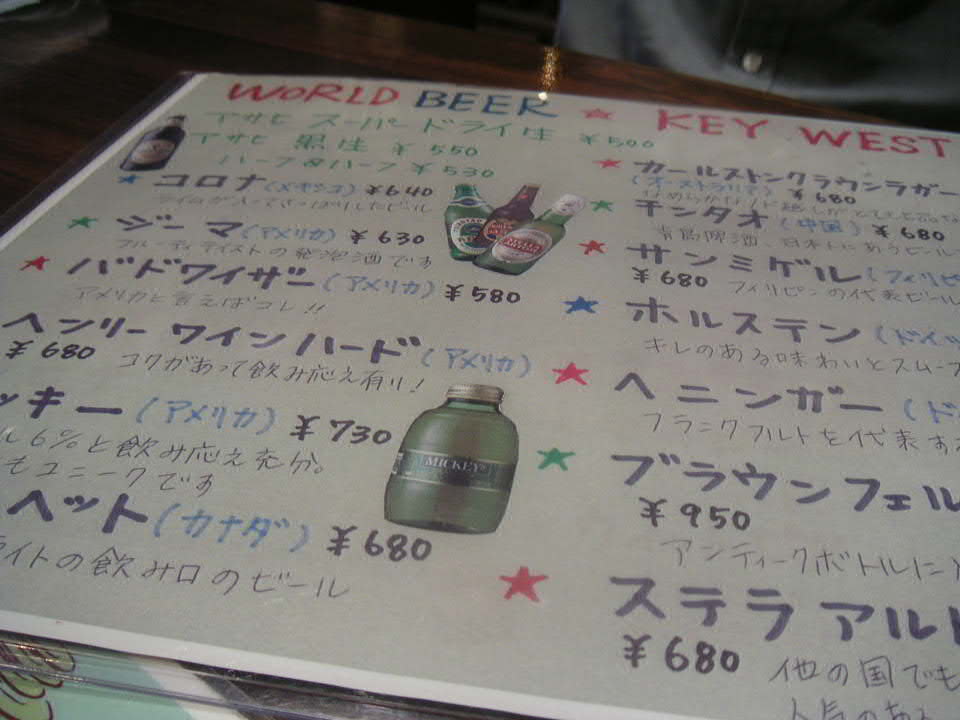 WORLD BEER ★ KEY WEST
アサヒ スーパードライ生 ¥500
アサヒ 黒生 ¥550
ハーフ&ハーフ ¥530
★コロナ(メキシコ) ¥640
ライムが入ってさっぱりしたビール
★ジーマ(アメリカ) ¥630
フルーティテイストの発泡酒です
★バドワイザー(アメリカ) ¥580
アメリカと言えばコレ!!
ヘンリーワインハード(アメリカ)
¥680 コクがあって飲み応え有り!
ッキー(アメリカ) ¥730
ル6%と飲み応え充分。
もユニークです
MICKEY'S
ヘット(カナダ) ¥680
ライトの飲み口のビール
★カールストンクラウンラガー
(オーストラリア) ¥680
★チンタオ(中国) ¥680
青島啤酒、日本にあうビール
★サンミゲル(フィリピ
¥680 フィリピンの代表ビール
★ホルステン(ドイツ
キレのある味わいとスムーフ
★ヘニンガー(ド
フランクフルトを代表する
★ブラウンフェル
¥950
アンティークボトルに入
★ステラ アルト
¥680 他の国でも
人気のあ